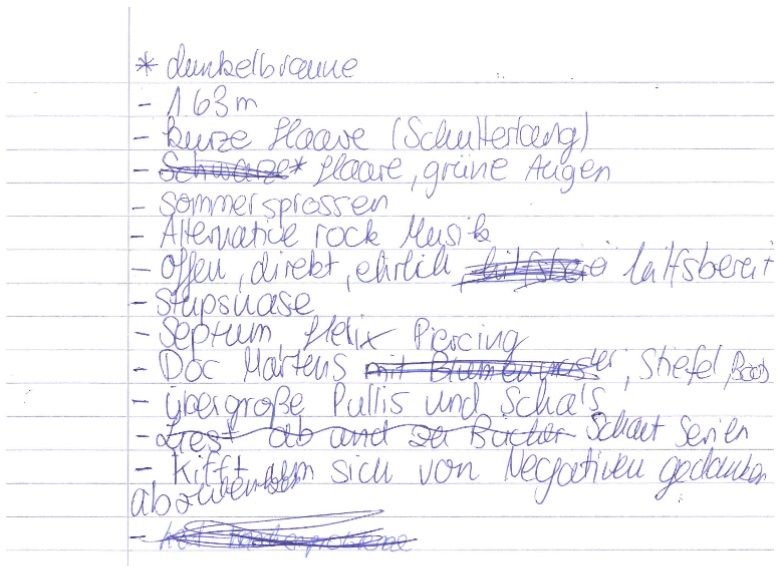 * dunkelbraune
- 1.63m
- kurze Haare (Schulterlang)
- Schwarze* Haare, grüne Augen
- Sommersprossen
- Alternative rock Musik
- Offen, direkt, ehrlich, hilfsbereit
- Stupsnase
- Septum Helix Piercing
- Doc Martens mit Blumenmuster, Stiefel, Boots
- übergroße Pullis und Schals
- Liest ab und zu Bücher Schaut Serien
- Kifft um sich von Negativen gedanken
abzuwenden
-